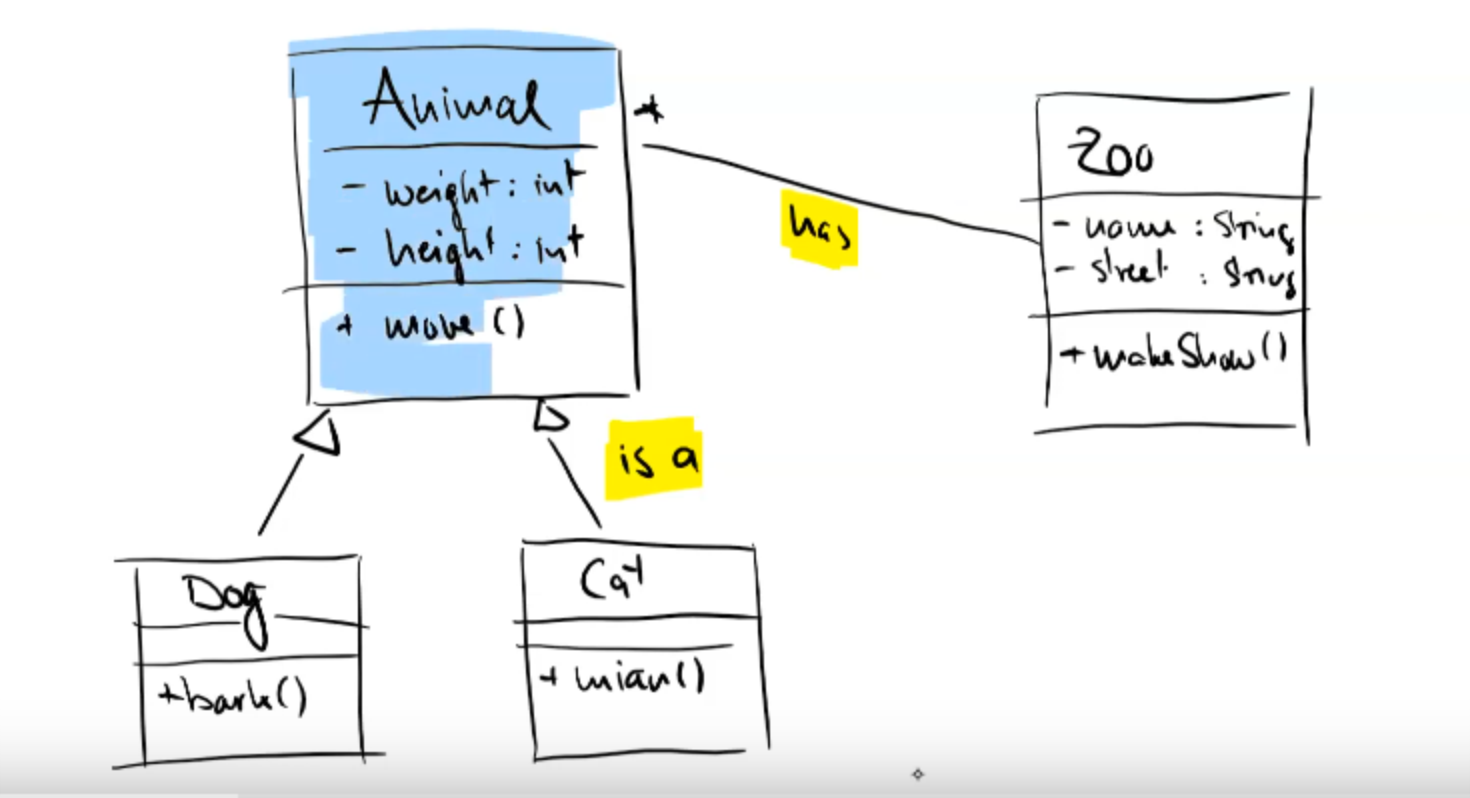 Animal
- weight : int
- height : int
+ move ()
*
has
Zoo
- name : String
- street : String
+ makeShow()
is a
Dog
+ bark()
Cat
+ miau()